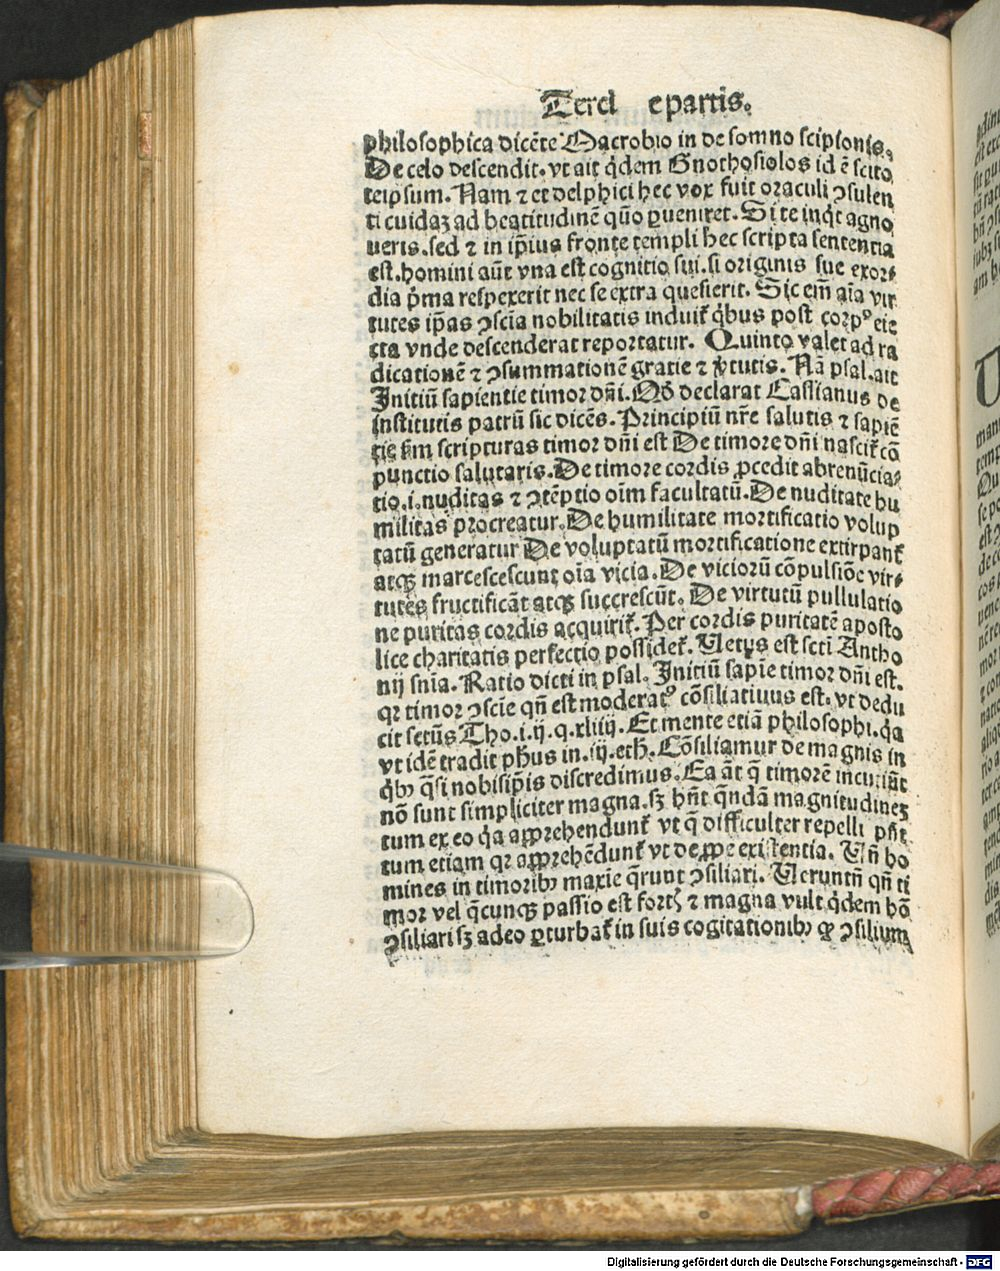 Terci e partis.
philosophica dicẽte Macrobio in de somno scipionis.
De celo descendit. vt ait q̇dem Gnothosiolos id ẽ scito
teipsum. Nam ⁊ et delphici hec vox fuit oraculi ꝯsulen
ti cuidaꝫ ad beatitudinẽ quo ꝑueniret. Si te inq̇t agno
ueris. sed ⁊ in ip̃ius fronte templi hec scripta sententia
est. homini aũt vna est cognitio sui. si originis sue exor⸗
dia p̓ma respexerit nec se extra quesierit. Sic em̃ aĩa vir
tutes ip̃as ꝯscĩa nobilitatis induit᷑ q̇bus post corpꝰ eie
cta vnde descenderat reportatur. Quinto valet ad ra
dicationẽ ⁊ ꝯsummationẽ gratie ⁊ v̓tutis. Nã psal. ait
Initiũ sapientie timor dñi. Qḋ declarat Cassianus de
institutis patrũ sic dicẽs. Principiũ nr̃e salutis ⁊ sapiẽ
tie sm̃ scripturas timor dñi est De timore dñi nascit᷑ cõ
punctio salutaris. De timore cordis ꝓcedit abrenũcia⸗
tio .i. nuditas ⁊ ꝯtẽptio oĩm facultatũ. De nuditate hu
militas procreatur. De humilitate mortificatio volup
tatũ generatur De voluptatũ mortificatione extirpant᷑
atqꝫ marcescescunt oĩa vicia. De viciorũ cõpulsiõe vir⸗
tutes fructificãt atqꝫ succrescũt. De virtutũ pullulatio
ne puritas cordis acquirit᷑. Per cordis puritatẽ aposto
lice charitatis perfectio possidet᷑. Uerus est scti Antho
nij snĩa. Ratio dicti in psal. Initiũ sapiẽ timor dñi est.
qꝛ timor ꝯscĩe qñ est moderatꝰ cõsiliatiuus est. vt dedu
cit sctũs Tho. i. ij. q. xliiij. Et mente etiã philosophi. q̇a
vt idẽ tradit pħus in .iij. eth. Cõsiliamur de magnis in
q̇bꝫ q̃si nobisip̃is discredimus. Ea ãt q̃ timorẽ incutiũt
nõ sunt simpliciter magna. sꝫ hñt q̃ndã magnitudineꝫ
tum ex eo q̇a apprehendunt᷑ vt q̃ difficulter repelli pñt
tum etiam qꝛ apprehẽdunt᷑ vt de ꝓpe existentia. Uñ ho
mines in timoribꝫ maxĩe q̃runt ꝯsiliari. Ueruntñ qñ ti
mor vel q̃cunqꝫ passio est fortꝭ ⁊ magna vult q̇dem hõ
ꝯsiliari sꝫ adeo ꝑturbat᷑ in suis cogitationibꝫ ꝙ ꝯsilium
Digitalisierung gefördert durch die Deutsche Forschungsgemeinschaft - DFG